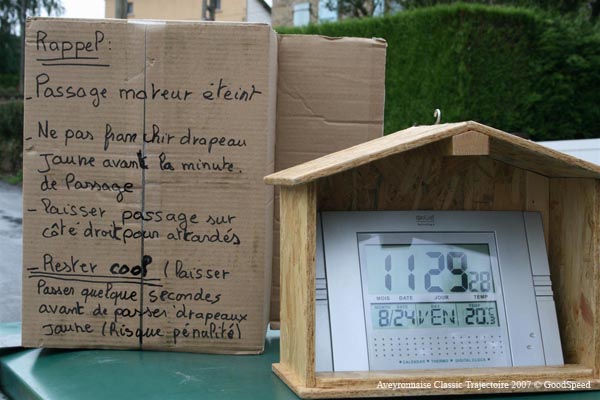 Rappel:
- Passage moteur éteint
- Ne pas franchir drapeau
Jaune avant la minute
de Passage
- Laisser passage sur
côté droit pour attardés
- Rester cool (laisser
Passer quelque secondes
avant de passer drapeaux
jaune (Risque pénalité)
11:29 28
MOIS DATE JOUR TEMP
8/24 VEN 20.5°C
CALENDAR THERMO DIGITAL CLOCK
Aveyronnaise Classic Trajectoire 2007 © GoodSpeed